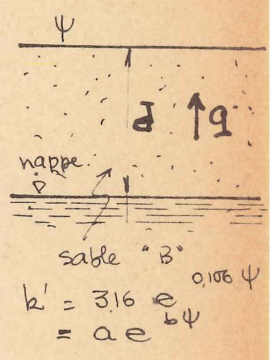 ψ
d
q
nappe
sable "B"
k' = 3.16 e^0,106 ψ
= a e^bψ